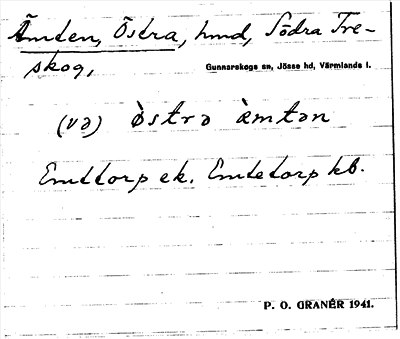 Ämten, Östra, hmd, Södra Tre-
skog,
Gunnarskogs sn, Jösse hd, Värmlands l.
(və) östrə ämtən
Emttorp ek. Emtetorp kb.
P. O. GRANÉR 1941.